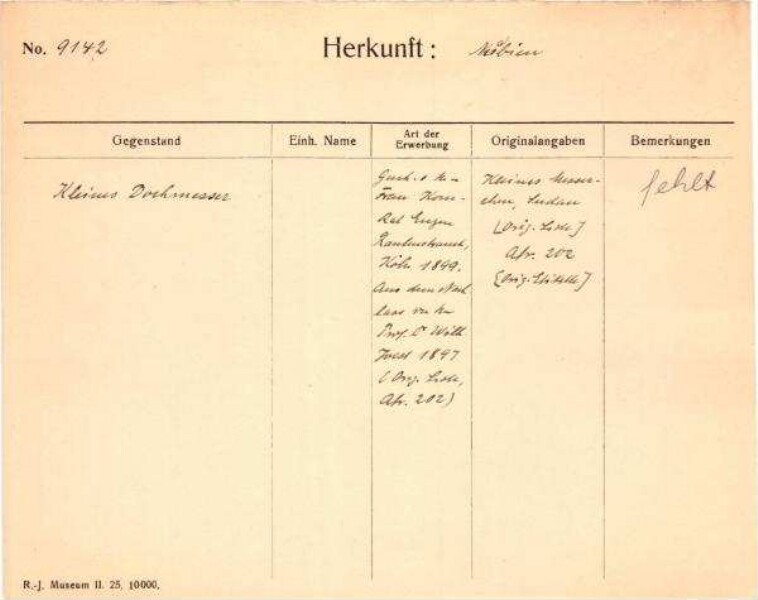 No. 9142
Herkunft: Nubien
Gegenstand
Einh. Name
Art der
Erwerbung
Originalangaben
Bemerkungen
Kleines Dochmesser
Frau Kom-
Rat Eugen
Rautenstrauch,
Köln 1899.
Aus dem Nach
lass
Prof. Dr Wilh
Joest 1897
(Orig. Liste,
Afr. 202)
Kleines Messer-
chen, Sudan
[Orig. Liste]
Afr. 202
[Orig. Etikette]
fehlt
R.-J. Museum II. 25. 10000.